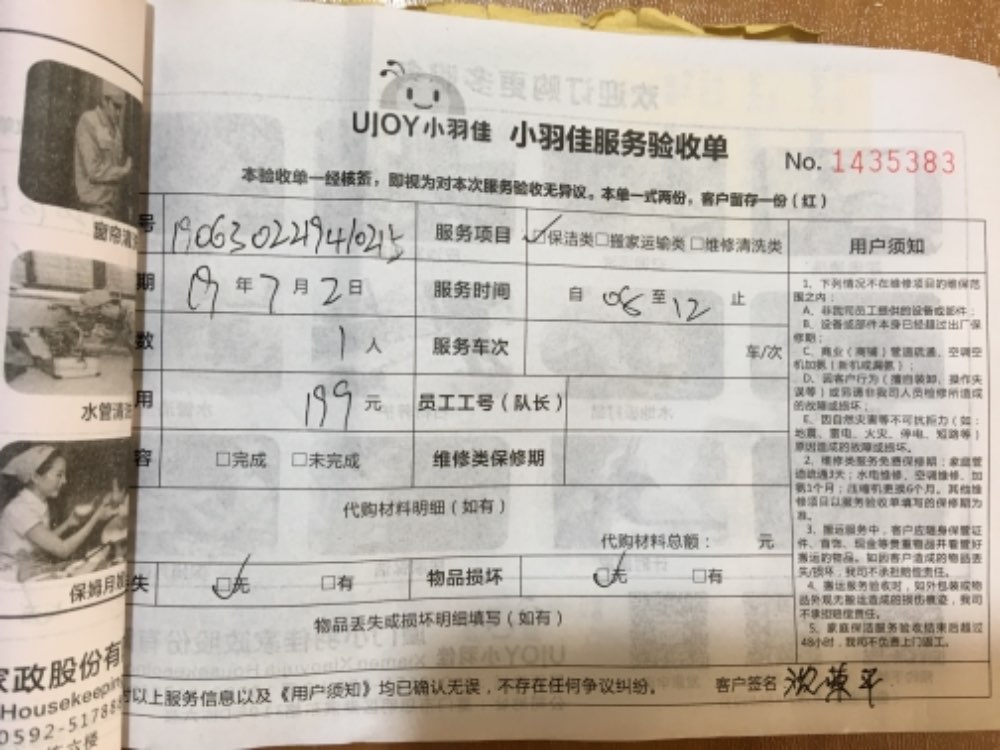 UJOY小羽佳 小羽佳服务验收单
No. 1435383
本验收单一经核签，即视为对本次服务验收无异议。本单一式两份，客户留存一份（红）
号 服务项目 ☑保洁类□搬家运输类□维修清洗类 用户须知
期 19年7月2日 服务时间 自 08 至 12 止
数 1人 服务车次 车/次
用 199元 员工工号（队长）
容 □完成 □未完成 维修类保修期
代购材料明细（如有）
代购材料总额： 元
失 ☑无 □有 物品损坏 ☑无 □有
物品丢失或损坏明细填写（如有）
以上服务信息以及《用户须知》均已确认无误，不存在任何争议纠纷。 客户签名
1、下列情况不在维修项目的维保范
围之内：
A、非我司员工提供的设备或部件；
B、设备或部件本身已经超过出厂保
修期；
C、商业（商铺）管道疏通、空调空
机加氨（新机或漏氨）；
D、因客户行为（擅自装卸、操作失
误等）或另请非我司人员检修所造成
的故障或损坏；
E、因自然灾害等不可抗拒力（如：
地震、雷电、火灾、停电、短路等）
原因造成的故障或损坏。
2、维修类服务免费保修期：家庭管
道疏通3天；水电维修、空调维修、加
氨1个月；压缩机更换6个月。其他维
修项目以服务验收单填写的保修期为
准。
3、搬运服务中，客户应随身保管证
件、首饰、现金等贵重物品并看管好
搬运的物品。如因客户造成的物品丢
失/损坏，我司不承担赔偿责任。
4、搬运服务验收时，如外包装或物
品外观无搬运造成的损伤痕迹，我司
不承担赔偿责任。
5、家庭保洁服务验收结束后超过
48小时，我司不负责上门返工。
窗帘清洗
水管清洗
保姆月嫂
家政股份有
Housekeeping
0592-51788